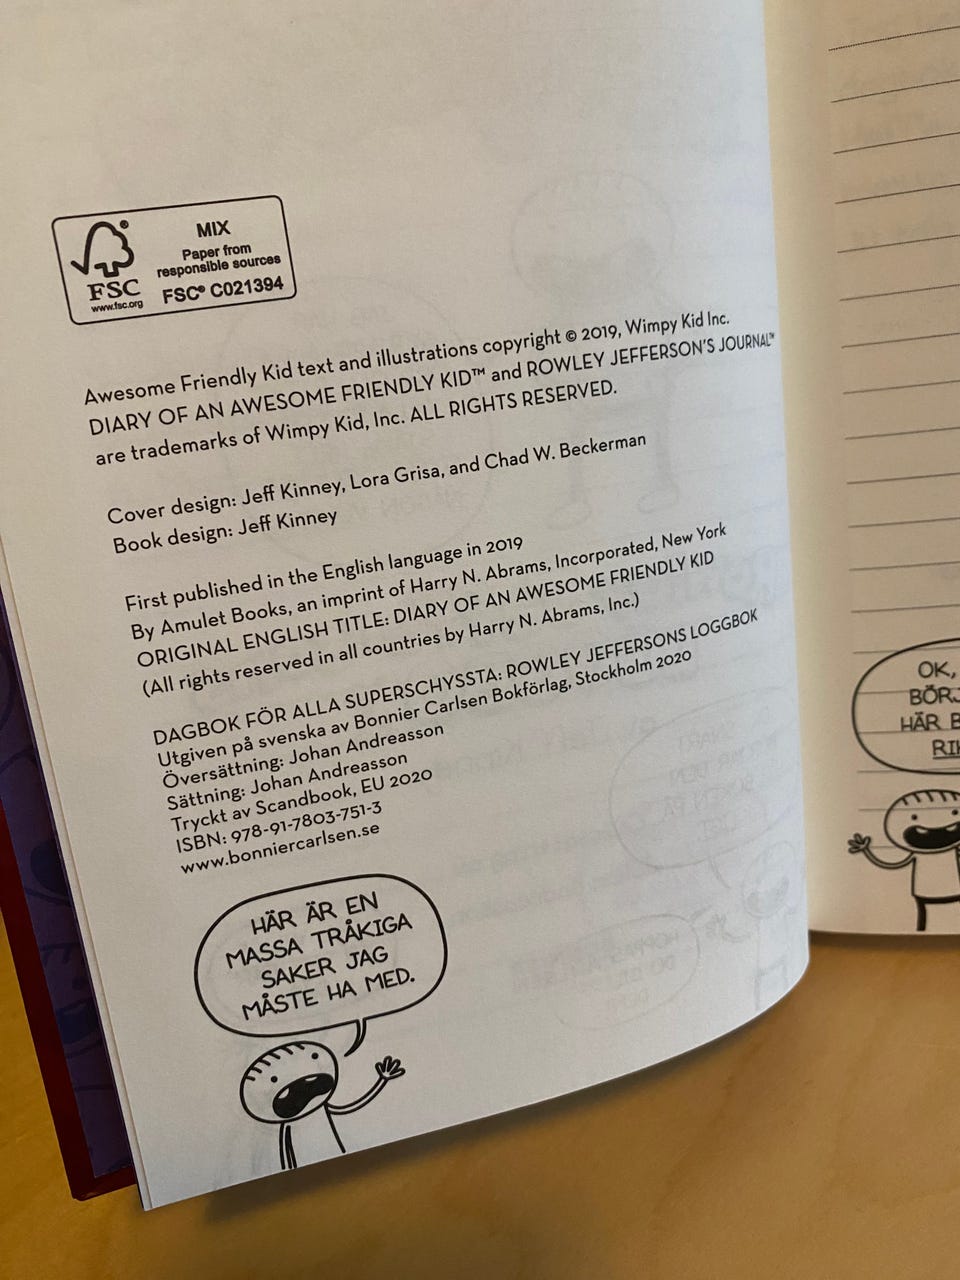 MIX
Paper from
responsible sources
FSC® C021394
FSC
www.fsc.org
Awesome Friendly Kid text and illustrations copyright © 2019, Wimpy Kid Inc.
DIARY OF AN AWESOME FRIENDLY KID™ and ROWLEY JEFFERSON'S JOURNAL™
are trademarks of Wimpy Kid, Inc. ALL RIGHTS RESERVED.
Cover design: Jeff Kinney, Lora Grisa, and Chad W. Beckerman
Book design: Jeff Kinney
First published in the English language in 2019
By Amulet Books, an imprint of Harry N. Abrams, Incorporated, New York
ORIGINAL ENGLISH TITLE: DIARY OF AN AWESOME FRIENDLY KID
(All rights reserved in all countries by Harry N. Abrams, Inc.)
DAGBOK FÖR ALLA SUPERSCHYSSTA: ROWLEY JEFFERSONS LOGGBOK
Utgiven på svenska av Bonnier Carlsen Bokförlag, Stockholm 2020
Översättning: Johan Andreasson
Sättning: Johan Andreasson
Tryckt av Scandbook, EU 2020
ISBN: 978-91-7803-751-3
www.bonniercarlsen.se
HÄR ÄR EN
MASSA TRÅKIGA
SAKER JAG
MÅSTE HA MED.
OK,
HÄR